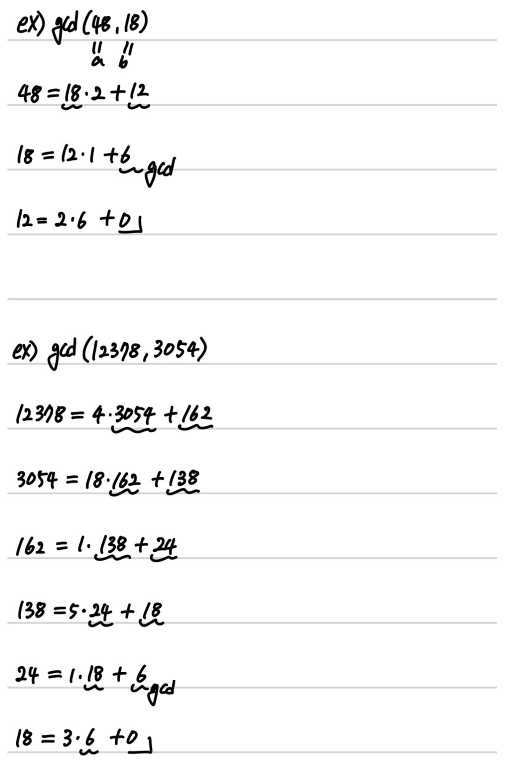 ex) gcd (48, 18)
" "
a b
48 = 18·2 + 12
18 = 12·1 + 6 gcd
12 = 2·6 + 0
ex) gcd (12378, 3054)
12378 = 4·3054 + 162
3054 = 18·162 + 138
162 = 1·138 + 24
138 = 5·24 + 18
24 = 1·18 + 6 gcd
18 = 3·6 + 0